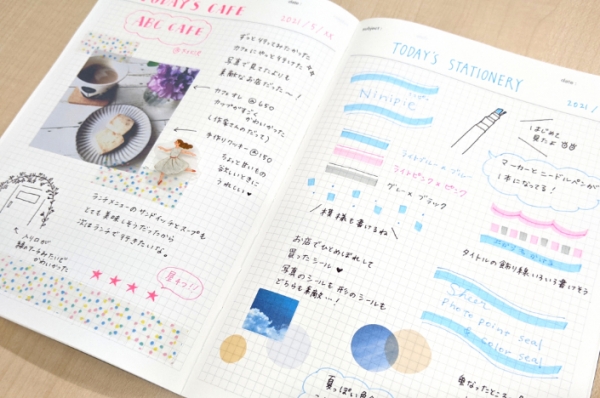 TODAY'S CAFE
2021/5/XX
ABC CAFE
ずっと行ってみたかった
カフェにやっと行けた
写真で見てたよりも
素敵なお店だった〜!
カフェオレ @650
カップがすごく
かわいかった
(作家さんのだって)
手作りクッキー @150
ちょっと甘いもの
欲しいときに
うれしい♥
ランチメニューのサンドイッチとスープも
とても美味しそうだったから
次はランチで行きたいな。
入り口が
かわいかった
★★★★
星4つ!!
TODAY'S STATIONERY
2021/
Ninipie
はじめて
見たよ
マーカーとニードルペンが
1本になってる!
ライトブルー×ブルー
ライトピンク×ピンク
グレー×ブラック
模様も書けるね
タイトルの飾り線いろいろ書けそう
お店でひとめぼれして
買ったシール♥
写真のシールも形のシールも
どちらも素敵…!
Sheer
photo point seal
& color seal
夏っぽい
重なったところ